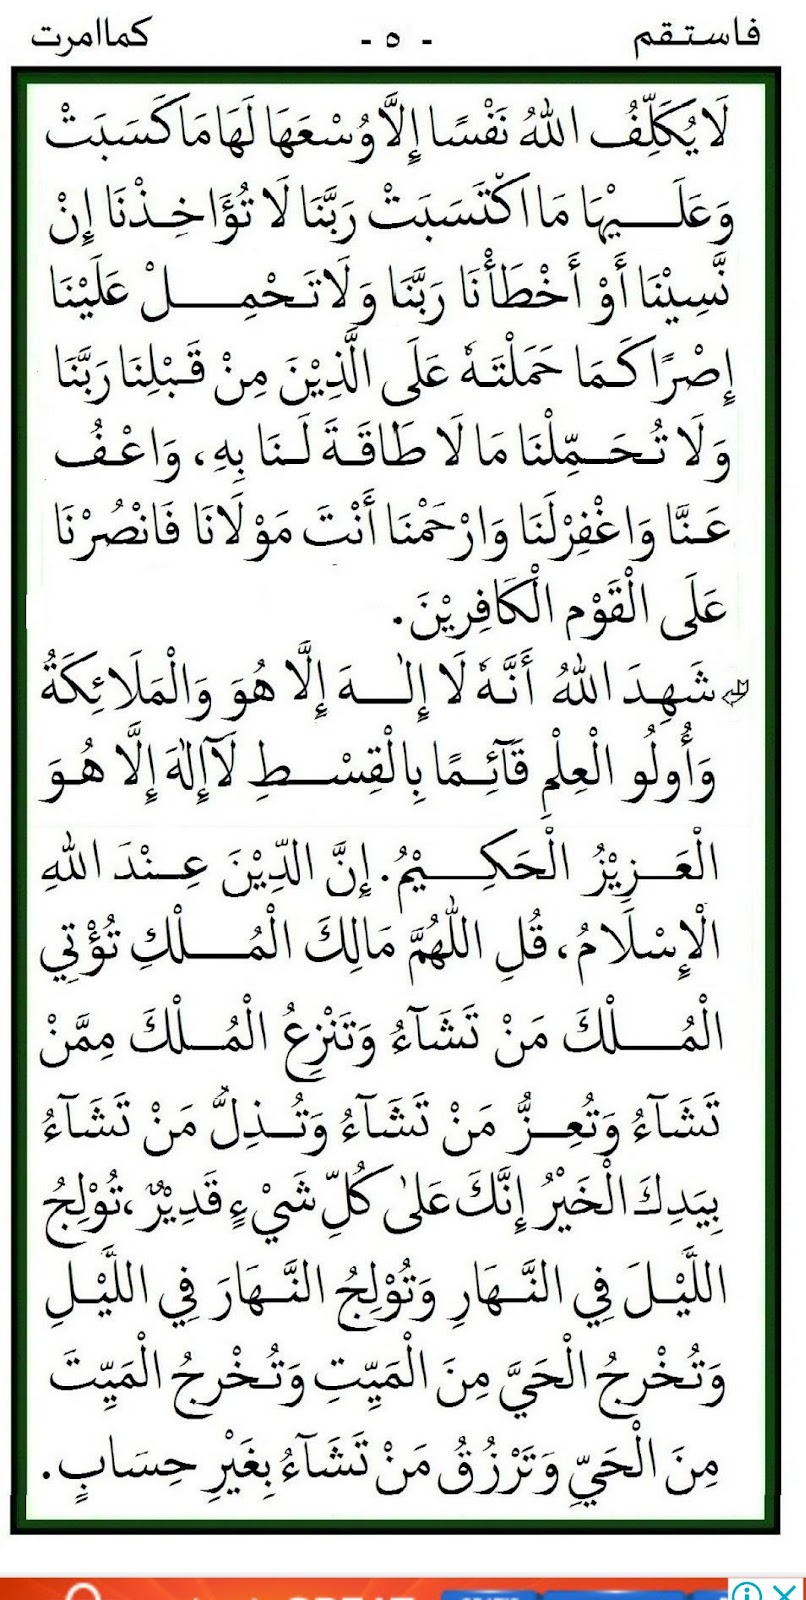 فاستقم - ٥ - كماامرت
لَا يُكَلِّفُ اللهُ نَفْسًا إِلَّا وُسْعَهَا لَهَا مَا كَسَبَتْ
وَعَلَـــيْهَا مَا اكْتَسَبَتْ رَبَّنَا لَا تُؤَاخِـذْنَا إِنْ
نَّسِيْنَا أَوْ أَخْطَأْنَا رَبَّنَا وَلَا تَـحْمِـــلْ عَلَيْنَا
إِصْرًا كَـمَا حَمَلْتَـهٗ عَلَى الَّذِيْنَ مِنْ قَـبْلِنَا رَبَّنَا
وَلَا تُـحَـمِّلْنَا مَا لَا طَاقَـةَ لَـنَا بِهِ، وَاعْـفُ
عَـنَّا وَاغْفِرْلَنَا وَارْحَمْنَا أَنْتَ مَوْلَانَا فَانْصُرْنَا
عَلَى الْقَوْمِ الْكَافِرِيْنَ.
شَهِـدَ اللهُ أَنَّـهٗ لَا إِلٰـــهَ إِلَّا هُوَ وَالْمَلَائِكَةُ
وَأُولُو الْعِلْمِ قَآئِـمًا بِالْقِسْـــطِ لَآإِلٰهَ إِلَّا هُـوَ
الْعَـــزِيْزُ الْحَكِـــيْمُ. إِنَّ الدِّيْنَ عِـنْدَ اللهِ
الْإِسْلَامُ، قُلِ اللّٰهُمَّ مَالِكَ الْمُـــلْكِ تُؤْتِي
الْمُـــلْكَ مَنْ تَشَآءُ وَتَنْزِعُ الْمُـــلْكَ مِمَّنْ
تَشَآءُ وَتُعِـــزُّ مَنْ تَشَآءُ وَتُـذِلُّ مَنْ تَشَآءُ
بِيَدِكَ الْخَيْرُ إِنَّكَ عَلىٰ كُلِّ شَيْءٍ قَدِيْرٌ، تُوْلِجُ
اللَّيْـلَ فِي النَّـهَارِ وَتُوْلِجُ النَّـهَارَ فِي اللَّيْـلِ
وَتُخْرِجُ الْحَيَّ مِنَ الْمَيِّتِ وَتُـخْرِجُ الْمَيِّتَ
مِنَ الْحَيِّ وَتَرْزُقُ مَنْ تَشَآءُ بِغَيْرِ حِسَابٍ.